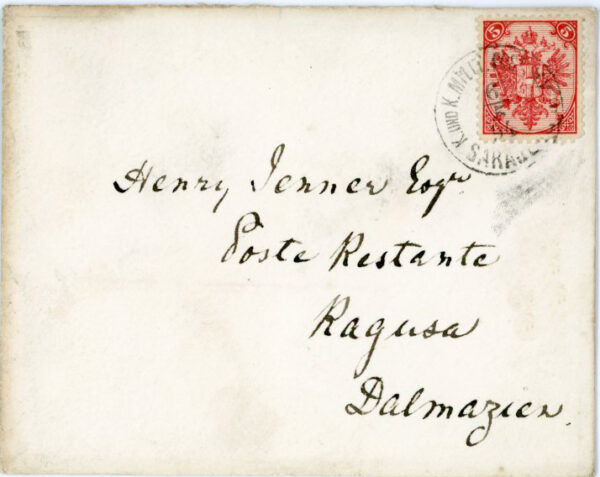 5 5
K. UND K. MILIT.
SARAJE
Henry Jenner Esqre
Poste Restante
Ragusa
Dalmazien.